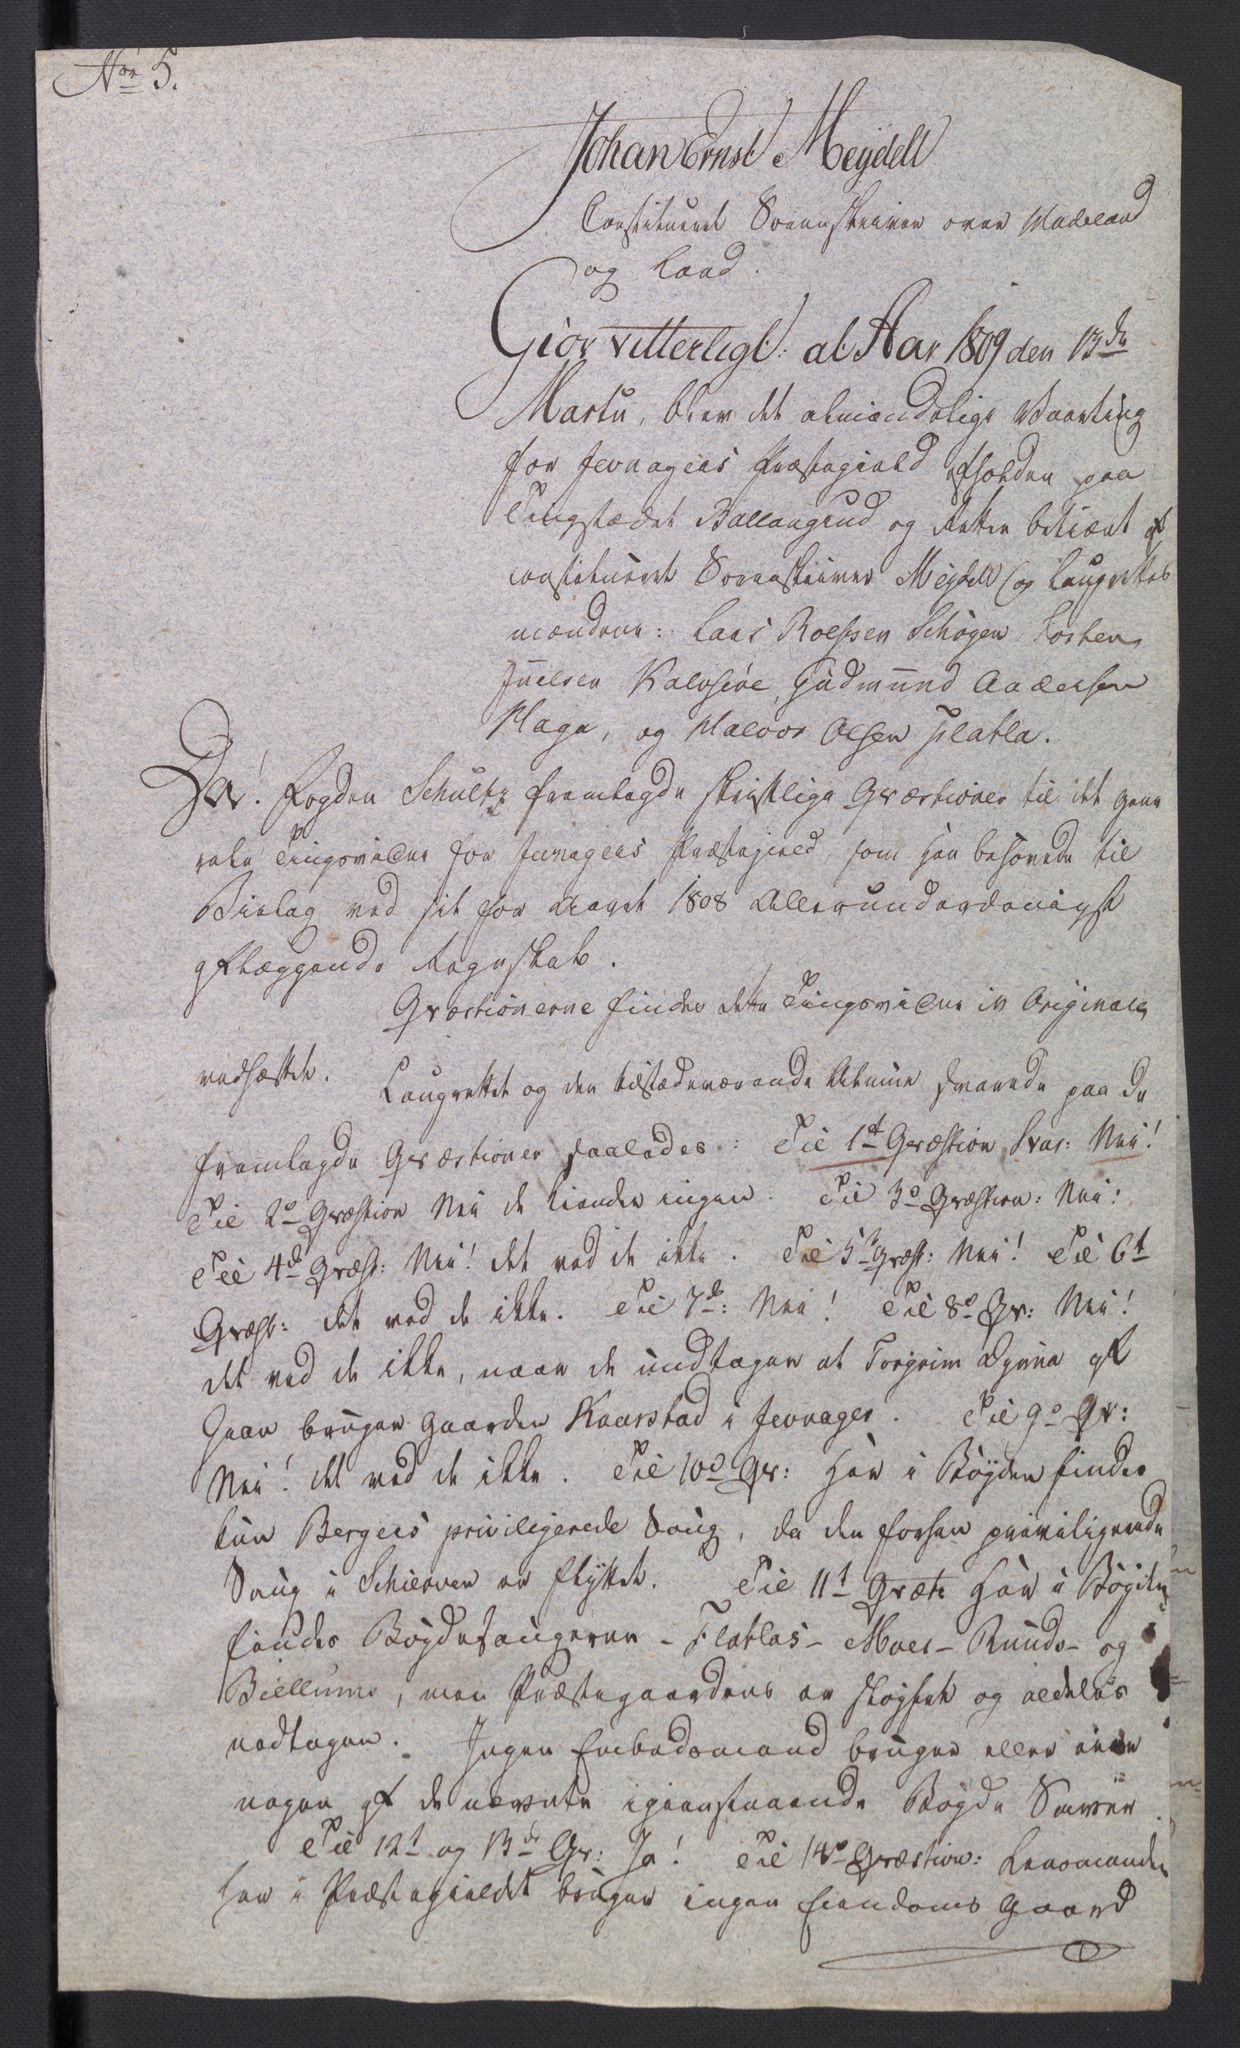 No 5.
Johan Ernst Mejdell
Constitueret Sorenskriver over Hadeland
og Land.
Giör vitterligt: at Aar 1809 den 13de
Martii, blev det almindelige Vaarting
for Jevnagers Præstegield afholden paa
Tingstædet Ballangrud og Retten betient af
constitueret Sorenskriver Mejdell og Laugrettes
mændene: Lars Roelfsen Schögen, Torsten
Juelsen Kalvsiöe, Gudmund Andersen
Haga, og Halvor Olsen Flatla.
Da! Fogden Schultz fremlagde skriftlige Qvæstioner til det gene
rale Tingsvidne for Jevnagers Præstegield, som han behövede til
Bielag ved sit for Aaret 1808 Allerunderdanigst
aflæggende Regnskab.
Qvæstionerne findes dette Tingsvidne in Originali
vedhæftet.
Laugrettet og den tilstædeværende Almue svarede paa de
fremlagde Qvæstioner saaledes: Til 1t Qvæstion Svar: Nei!
Til 2o Qvæstion Nei de kiender ingen. Til 3o Qvæstion: Nei!
Til 4de Qvæst: Nei! det ved de ikke. Til 5t Qvæst: Nei! Til 6t
Qvæst: det ved de ikke. Til 7de: Nei! Til 8o Qv: Nei!
det ved de ikke, naar de undtager at Torgrim Dynna af
Gran bruger Gaarden Kaarstad i Jevnager. Til 9o Qv:
Nei! det ved de ikke. Til 10de Qv: Her i Bøygden findes
kun Bergers priviligerede Saug, da den forhen priviligerede
Saug i Schierven er flyttet. Til 11t Qvæst: Her i Bøygden
findes Bøygdesaugerne - Flatlas - Moes - Ruuds - og
Biellums, men Præstegaardens er sløyfet og aldeles
nedtagen. Ingen Embedsmand bruger eller eier
nogen af de nævnte igienstaaende Bøygde Sauer.
Til 12t og 13de Qv: Ja! Til 14o Qvæstion: Lensmanden
her i Præstegieldet bruger ingen Eiendoms Gaard